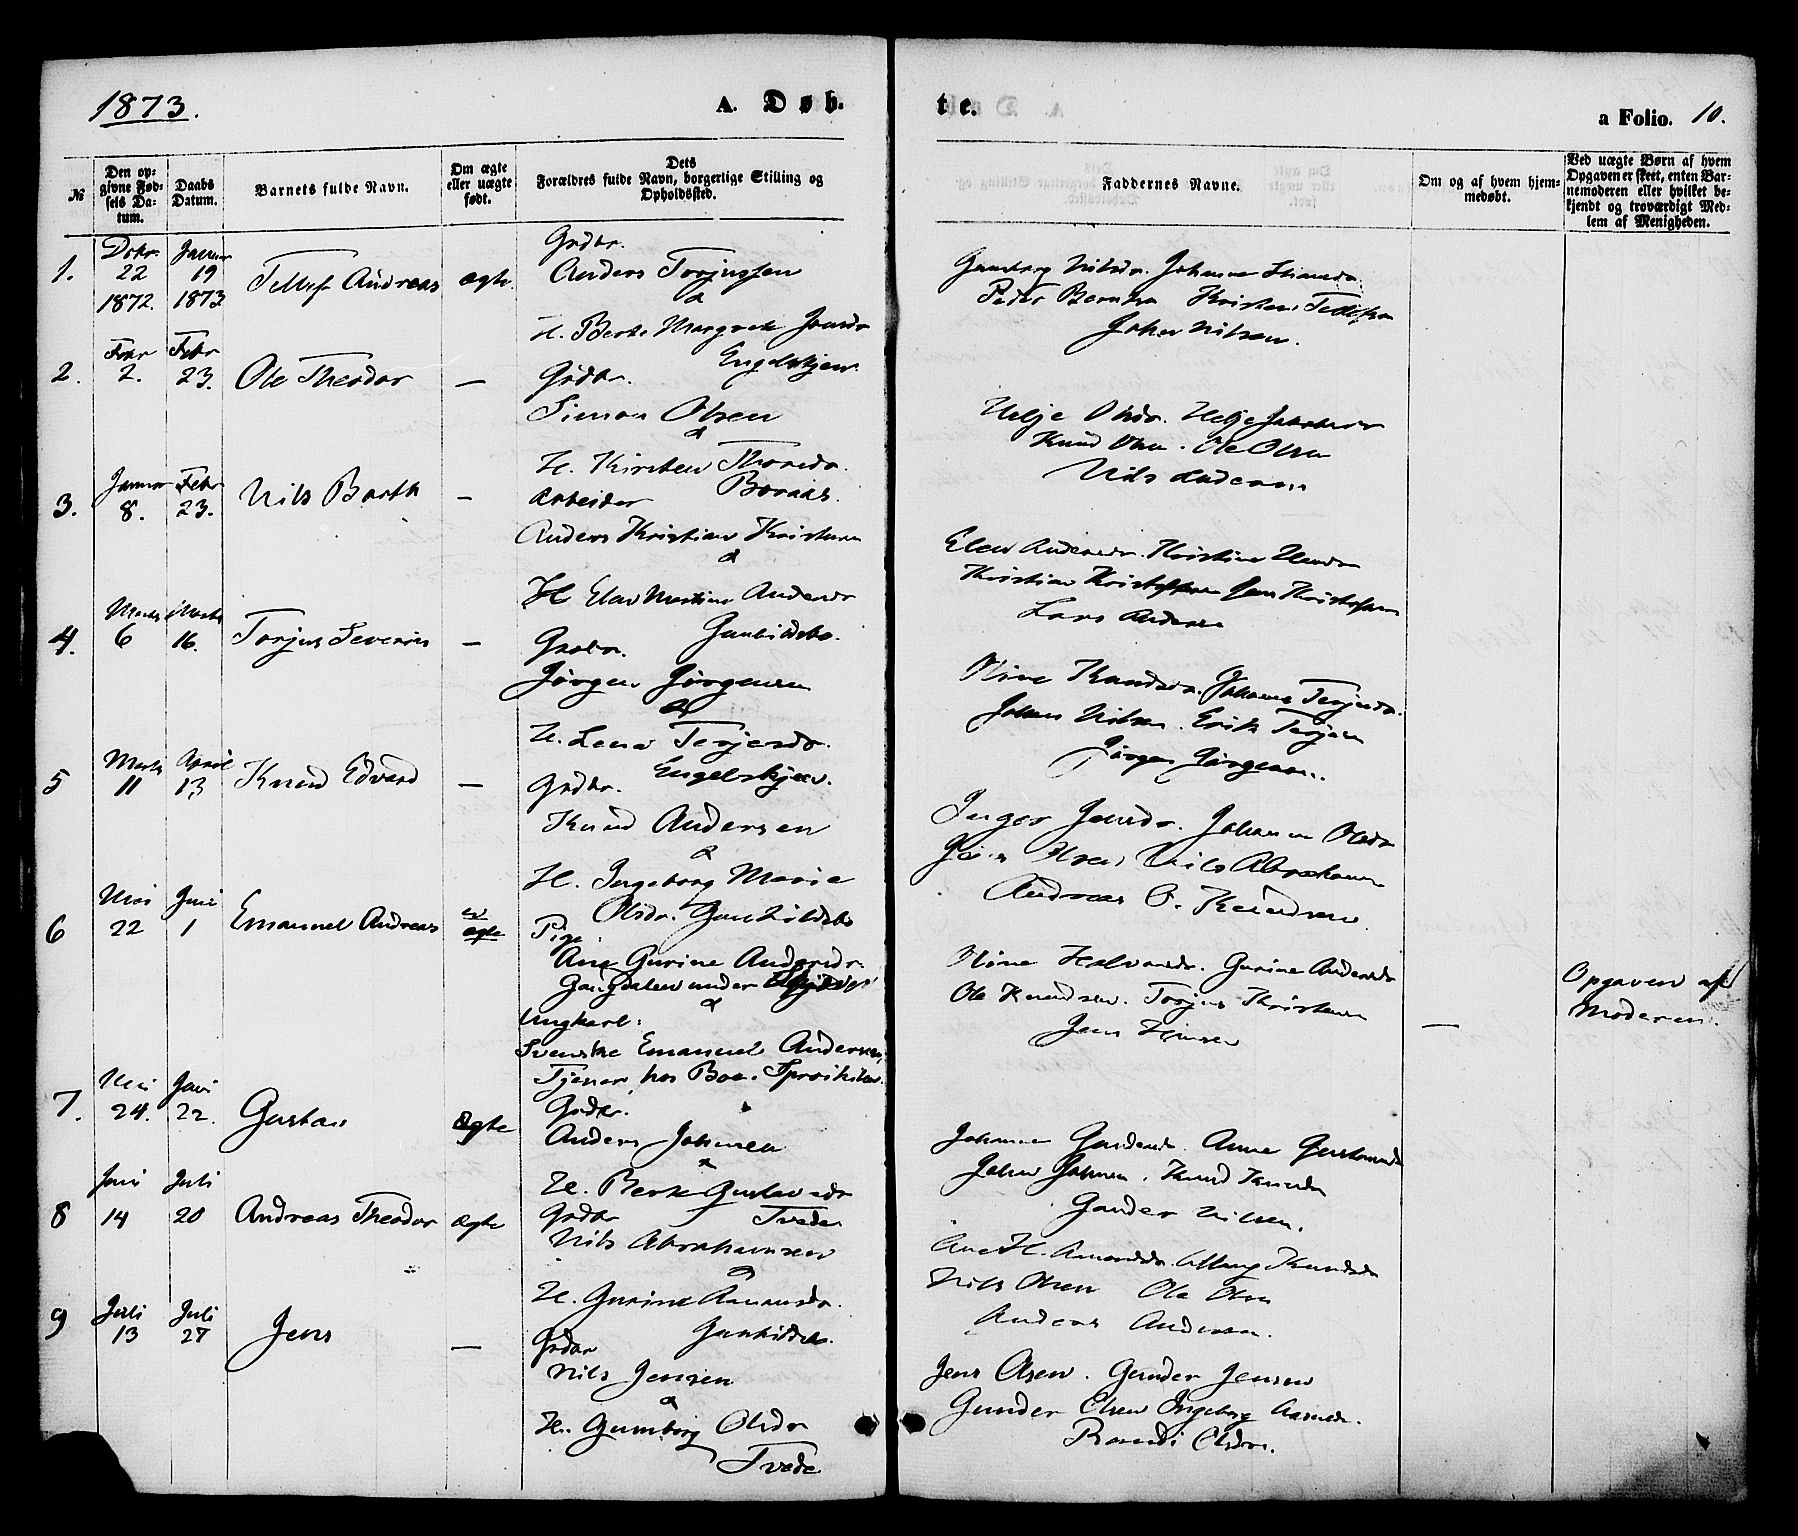 1873.
A. Døb-
te.
a Folio. 10.
№
Den op-
givne Fød-
sels Da-
tum.
Daabs
Datum.
Barnets fulde Navn.
Om ægte
eller uægte
født.
Dets
Forældres fulde Navn, borgerlige Stilling og
Opholdssted.
Faddernes Navne.
Om og af hvem hjem-
medøbt.
Ved uægte Børn af hvem
Opgaven er skeet, enten Bar-
nemoderen eller hvilket be-
kjendt og troværdigt Med-
lem af Menigheden.
1.
22
1872.
Januar
19
1873
Tellef Andreas
ægte.
Grdbr.
Anders Torjussen
&
H. Berte Margrete
Engelskjøn
Johanne
Peder Kristen
Johan Nilsen.
2.
2.
Febr
23.
Ole Theodor
—
Grdbr.
Simon Olsen
&
H. Kirsten
Boraas.
Helje Olsdr.
Knud Olsen. Ole Olsen
Nils Andersen
3.
Januar
8.
Febr
23.
Nils Barth
—
Arbeider
Anders Kristian Kristensen
&
H. Andersdr
Gunhildsbo.
Elen Andersdr. Kristine
Kristian Kristoffersen Jens Kristoffersen
Lars Andersen
4.
Marts
6
Marts
16.
Torjus Severin
—
Grdbr.
Jørgen Jørgensen
&
H. Lena Terjesdr.
Engelskjøn.
Oline Knudsdr. Johanne Terjesdr.
Johan Nilsen. Erik Terjesen
Jørgen Jørgensen.
5
Marts
11
April
13
Knud Edvard
—
Grdbr.
Knud Andersen
&
H. Ingeborg Marie
Olsdr. Gunhildsbo
Inger Jensdr. Johanne Olsdr
Olsen Nils Abrahamsen
Andreas O. Knudsen.
6
Mai
22
Juni
1
Emanuel Andreas
u
ægte
Pige
Ane Gurine Andersdr.
under
&
Ungkarl:
Svenske Emanuel Andersen,
Tjener hos Boe.
Oline Halvorsdr. Gurine Andersdr
Ole Knudsen. Torjus Kristensen
Jens
—
Opgaven af
Moderen.
7.
Mai
24.
Juni
22.
Gustav
Ægte
Grdbr.
Anders Johnsen
&
H. Berte Gustavsdr
Tvede
Johanne Anne Gustavsdr
John Johnsen. Knud
Gunder Nilsen.
8
Juni
14
Juli
20
Andreas Theodor
Ægte
Grdbr
Nils Abrahamsen
&
H. Gurine
Gunhildsbo.
Ane H. Knudsdr
Nils Olsen Ole Olsen
Anders Andersen.
9
Juli
13
Juli
27
Jens
—
Grdbr
Nils Jensen
&
H. Gumborg Olsdr
Tvede
Jens Olsen. Gunder Jensen
Gunder Olsen Ingeborg
Randi Olsdr.